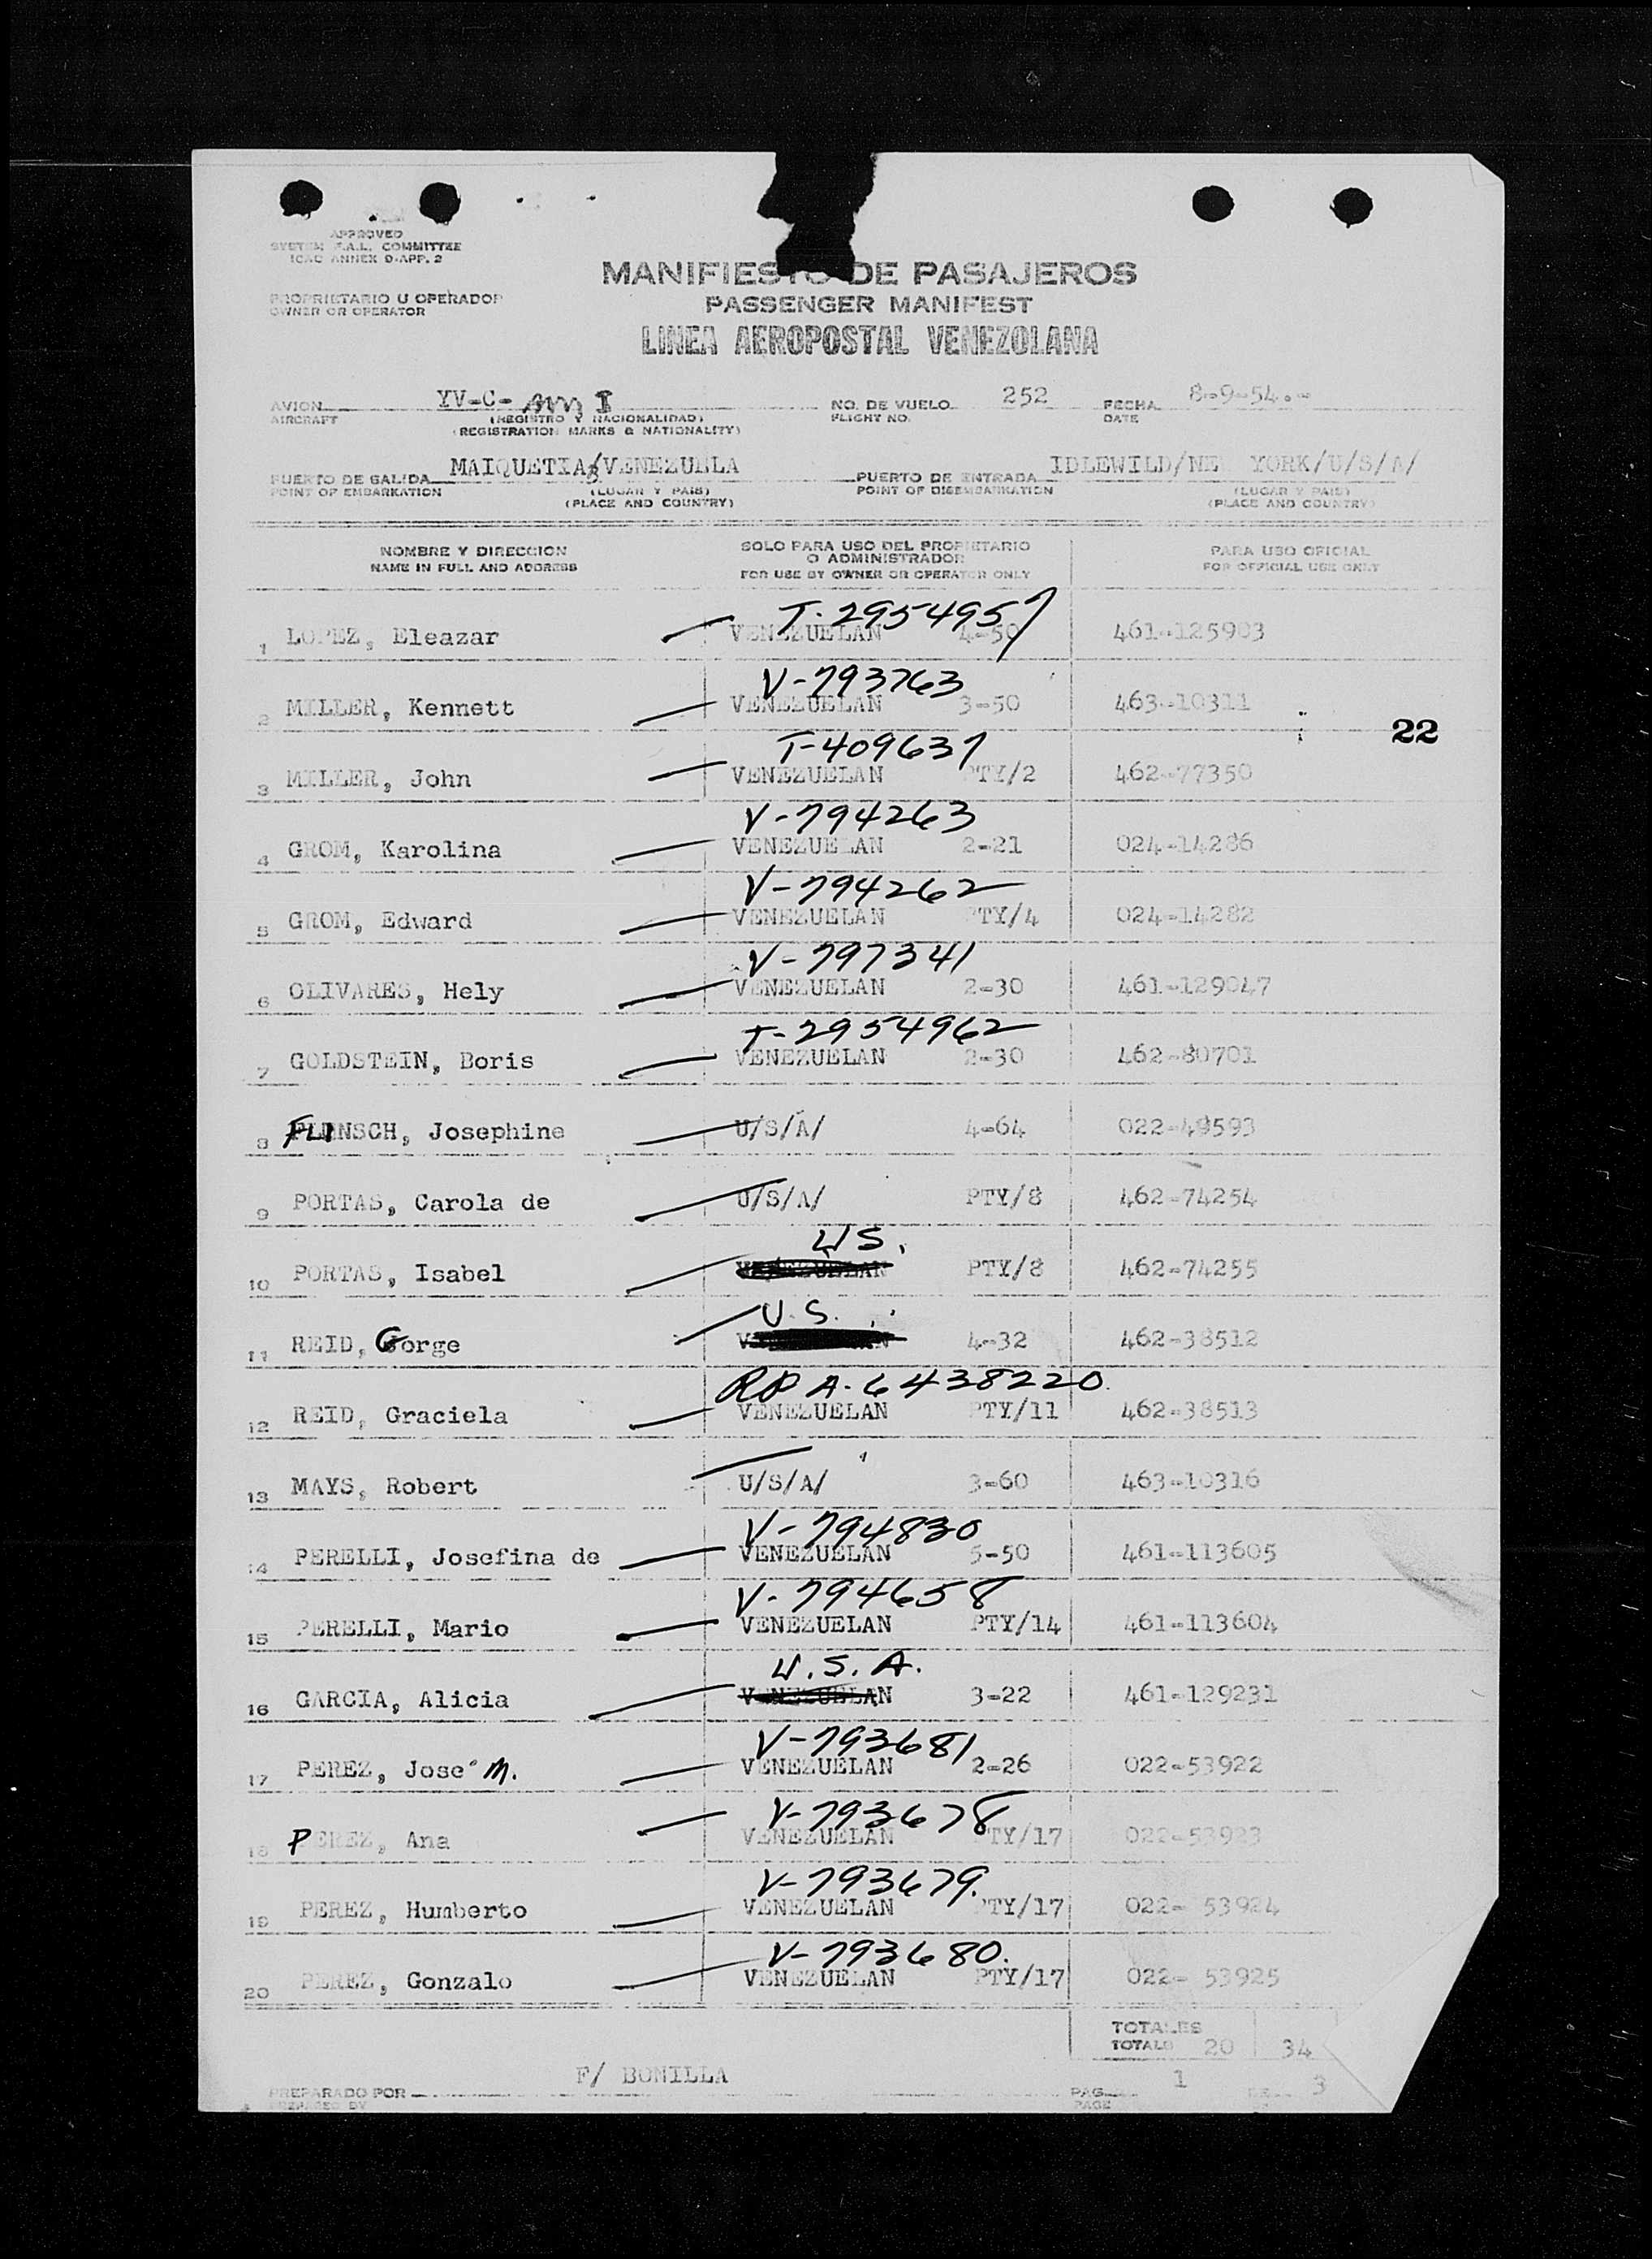 APPROVED
SYSTEM F.A.L. COMMITTEE
ICAO ANNEX 9-APP. 2
MANIFIESTO DE PASAJEROS
PASSENGER MANIFEST
LINEA AEROPOSTAL VENEZOLANA
PROPRIETARIO U OPERADOR
OWNER OR OPERATOR
AVION YV-C- NO. DE VUELO 252 FECHA 8-9-54.-
AIRCRAFT (REGISTRO Y NACIONALIDAD) FLIGHT NO. DATE
(REGISTRATION MARKS & NATIONALITY)
PUERTO DE SALIDA MAIQUETIA/VENEZUELA PUERTO DE ENTRADA IDLEWILD/NE YORK/U/S/A/
POINT OF EMBARKATION (LUGAR Y PAIS) POINT OF DISEMBARKATION (LUGAR Y PAIS)
(PLACE AND COUNTRY) (PLACE AND COUNTRY)
NOMBRE Y DIRECCION SOLO PARA USO DEL PROPIETARIO O ADMINISTRADOR PARA USO OFICIAL
NAME IN FULL AND ADDRESS FOR USE BY OWNER OR OPERATOR ONLY FOR OFFICIAL USE ONLY
T-2954957
1 LOPEZ, Eleazar VENEZUELAN 4-50 461-125903
V-793763
2 MILLER, Kennett VENEZUELAN 3-50 463-10311
22
T-409637
3 MILLER, John VENEZUELAN PTY/2 462-77350
V-794263
4 GROM, Karolina VENEZUELAN 2-21 024-14286
V-794262
5 GROM, Edward VENEZUELAN PTY/4 024-14282
V-797341
6 OLIVARES, Hely VENEZUELAN 2-30 461-129047
T-2954962
7 GOLDSTEIN, Boris VENEZUELAN 2-30 462-80701
8 FLINSCH, Josephine U/S/A/ 4-64 022-49593
9 PORTAS, Carola de U/S/A/ PTY/8 462-74254
US.
10 PORTAS, Isabel VENEZUELAN PTY/8 462-74255
U.S.
11 REID, Gorge 4-32 462-38512
RP A-6438220.
12 REID, Graciela VENEZUELAN PTY/11 462-38513
13 MAYS, Robert U/S/A/ 3-60 463-10316
V-794830
14 PERELLI, Josefina de VENEZUELAN 5-50 461-113605
V-794658
15 PERELLI, Mario VENEZUELAN PTY/14 461-113604
U.S.A.
16 GARCIA, Alicia VENEZUELAN 3-22 461-129231
V-793681
17 PEREZ, Jose M. VENEZUELAN 2-26 022-53922
V-793678
18 PEREZ, Ana VENEZUELAN PTY/17 022-53923
V-793679.
19 PEREZ, Humberto VENEZUELAN PTY/17 022- 53924
V-793680.
20 PEREZ, Gonzalo VENEZUELAN PTY/17 022- 53925
TOTALES
TOTALS 20 34
F/ BONILLA
PREPARADO POR PAG. 1 DE 3
PREPARED BY PAGE